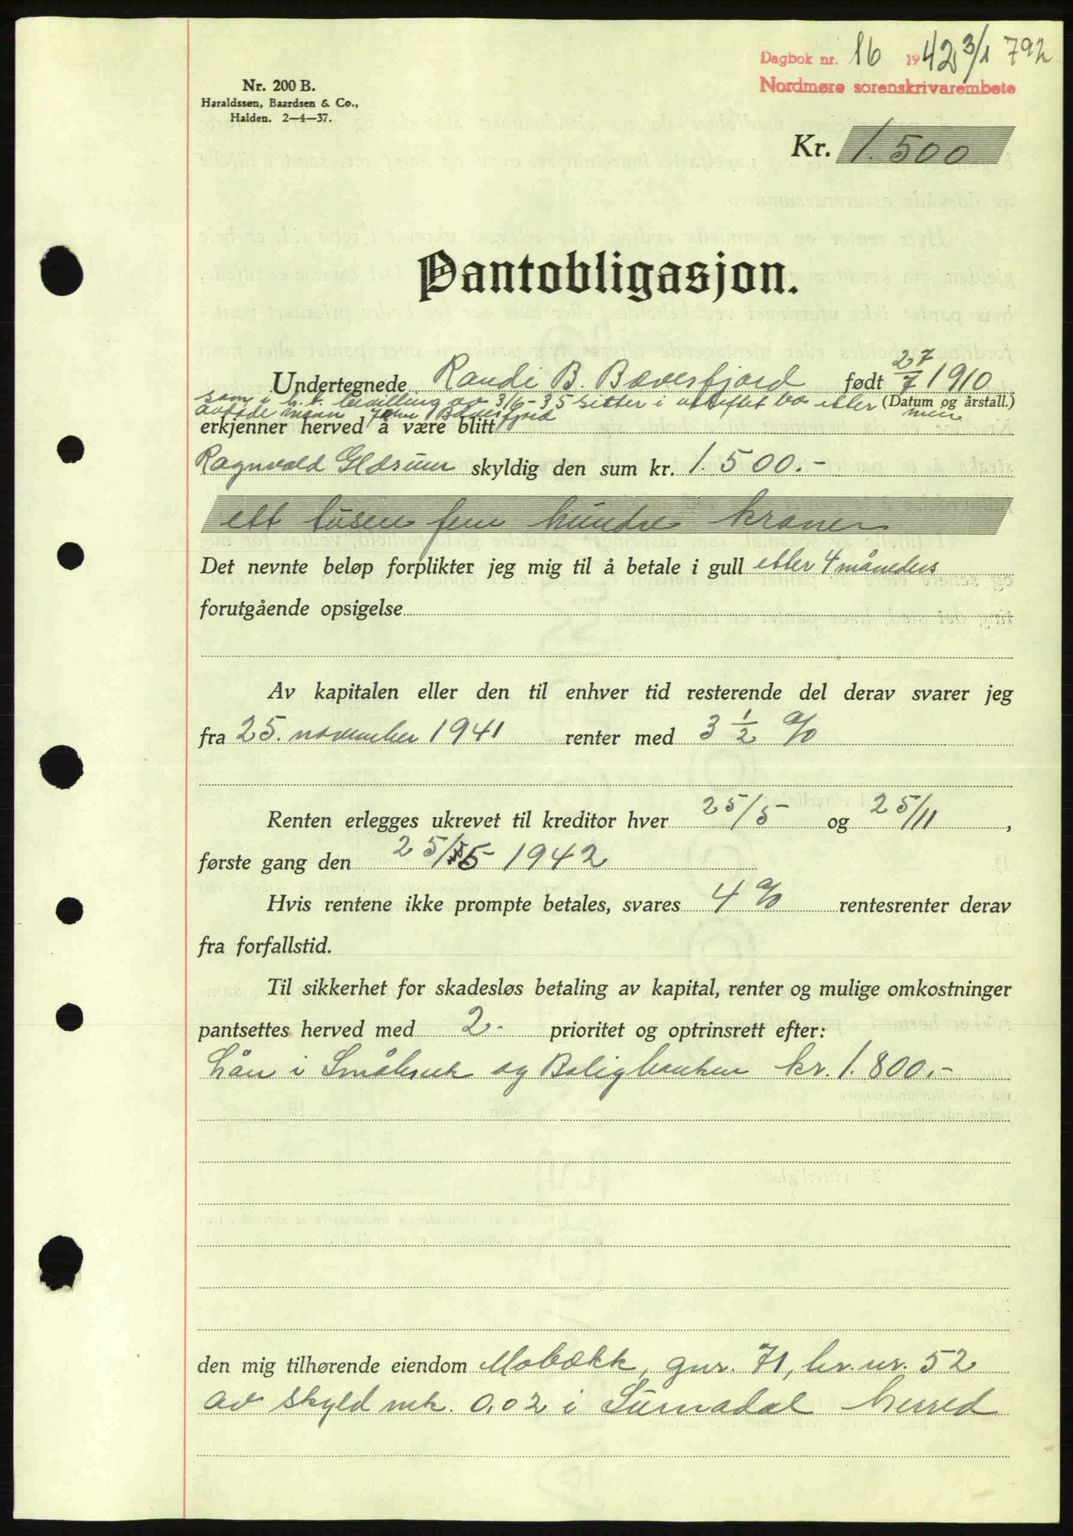 Dagbok nr. 16 1942 3/1 792
Nordmøre sorenskrivarembete
Nr. 200 B.
Haraldssen, Baardsen & Co.,
Halden. 2—4—37.
Kr. 1.500
Pantobligasjon.
Undertegnede Randi B. Bæverfjord født 27/7 1910
som i h.t. bevilling av 3/6-35 sitter i uskiftet bo etter min (Datum og årstall.)
avdøde mann John Bæverfjord
erkjenner herved å være blitt
Ragnvald Glærum skyldig den sum kr. 1.500.-
ett tusen fem hundre kroner
Det nevnte beløp forplikter jeg mig til å betale i gull etter 4 måneders
forutgående opsigelse
Av kapitalen eller den til enhver tid resterende del derav svarer jeg
fra 25. november 1941 renter med 3 1/2 %
Renten erlegges ukrevet til kreditor hver 25/5 og 25/11,
første gang den 25/5 1942
Hvis rentene ikke prompte betales, svares 4 % rentesrenter derav
fra forfallstid.
Til sikkerhet for skadesløs betaling av kapital, renter og mulige omkostninger
pantsettes herved med 2. prioritet og optrinsrett efter:
Lån i Småbruk og Boligbanken kr. 1.800.-
den mig tilhørende eiendom Mobækk, gnr. 71, br.nr. 52
av skyld mk. 0,02 i Surnadal herred